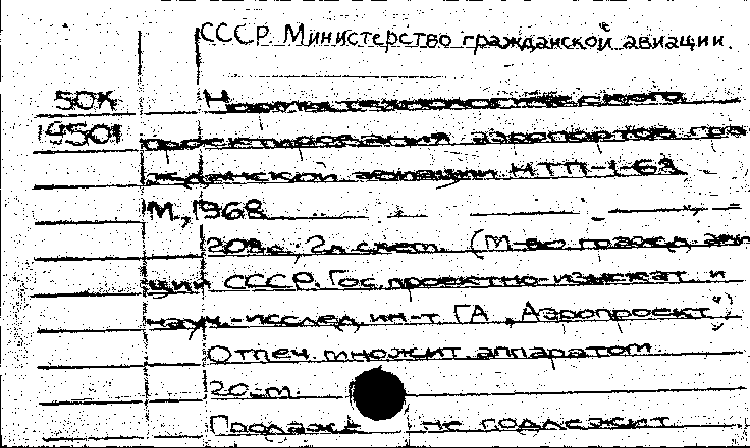 СССР Министерство гражданской авиации.
50К Нормы технологического
19501 проектирования аэропортов гра
жданской авиации НТП-1-68
М., 1968
208 с., 2 л схем. (М-во гражд. ави
ции СССР. Гос. проектно-изыскат. и
науч.-исслед. ин-т ГА „Аэропроект")
Отпеч. множит. аппаратом
20 см.
Продаже не подлежит